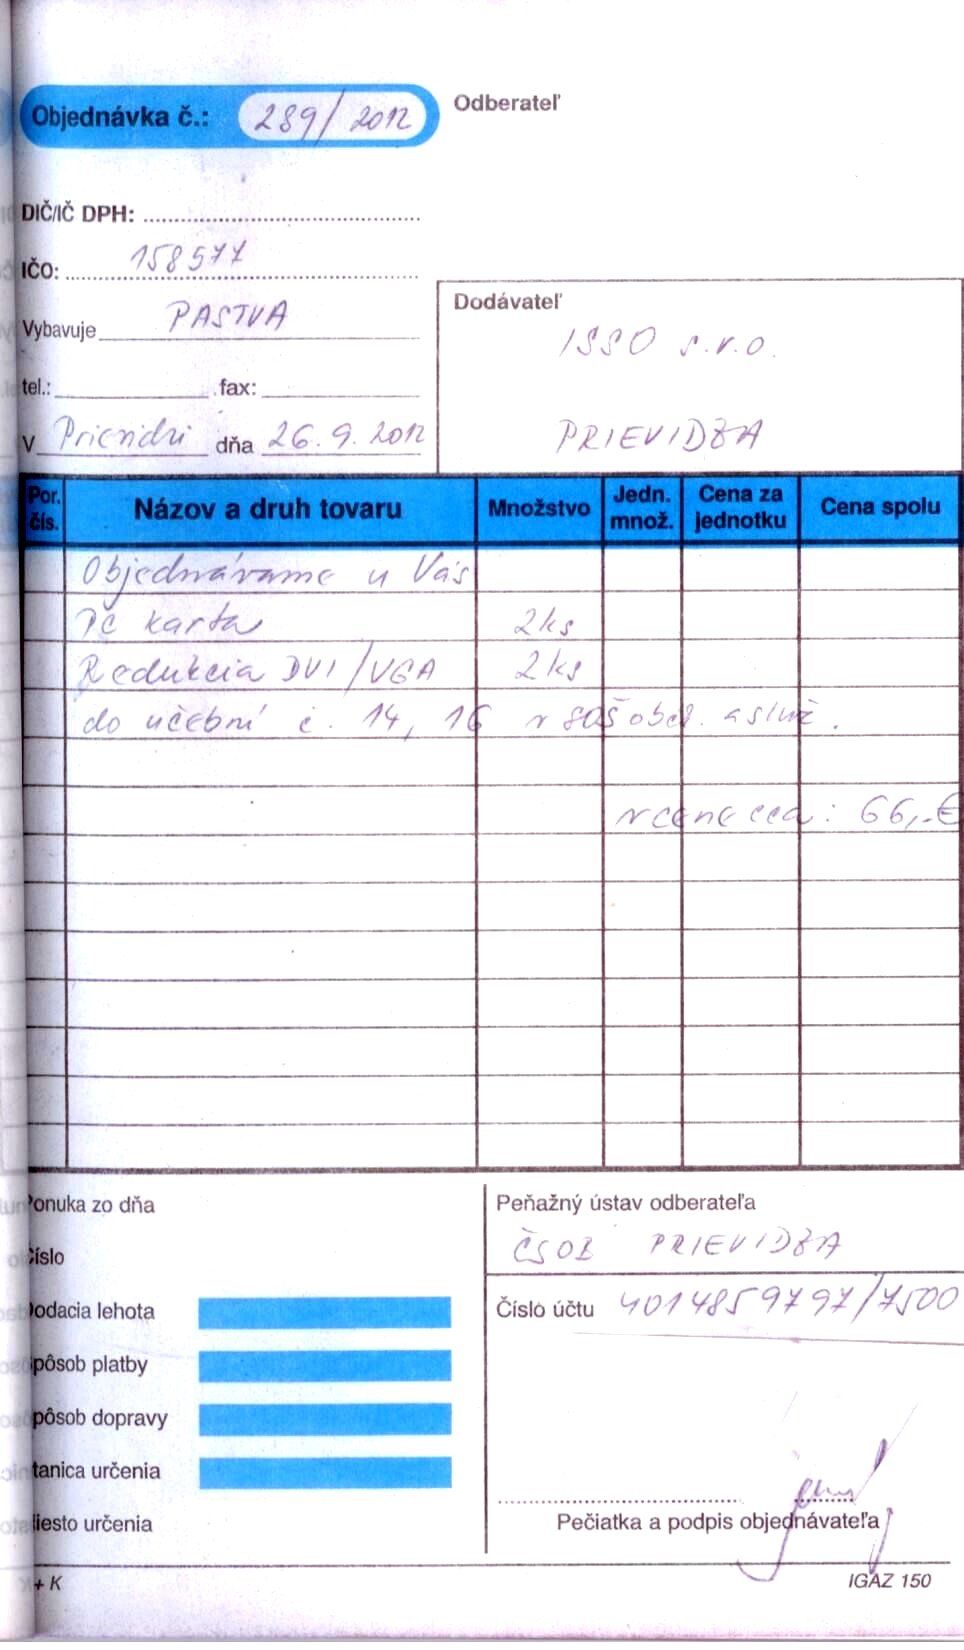 Objednávka č.: 289/2012
Odberateľ
DIČ/IČ DPH:
IČO: 158577
Vybavuje PASTVA
tel.: fax:
V Prievidzi dňa 26.9.2012
Dodávateľ
ISSO s.r.o.
PRIEVIDZA
Por. čís. Názov a druh tovaru Množstvo Jedn. množ. Cena za jednotku Cena spolu
Objednávame u Vás
PC karta 2ks
Redukcia DVI/VGA 2ks
do učební č. 14, 16 v SOŠ obch. a služ.
v cene cca: 66,-€
Ponuka zo dňa
Číslo
Dodacia lehota
pôsob platby
pôsob dopravy
tanica určenia
iesto určenia
Peňažný ústav odberateľa
ČSOB PRIEVIDZA
Číslo účtu 4014859797/7500
Pečiatka a podpis objednávateľa
+ K
IGAZ 150